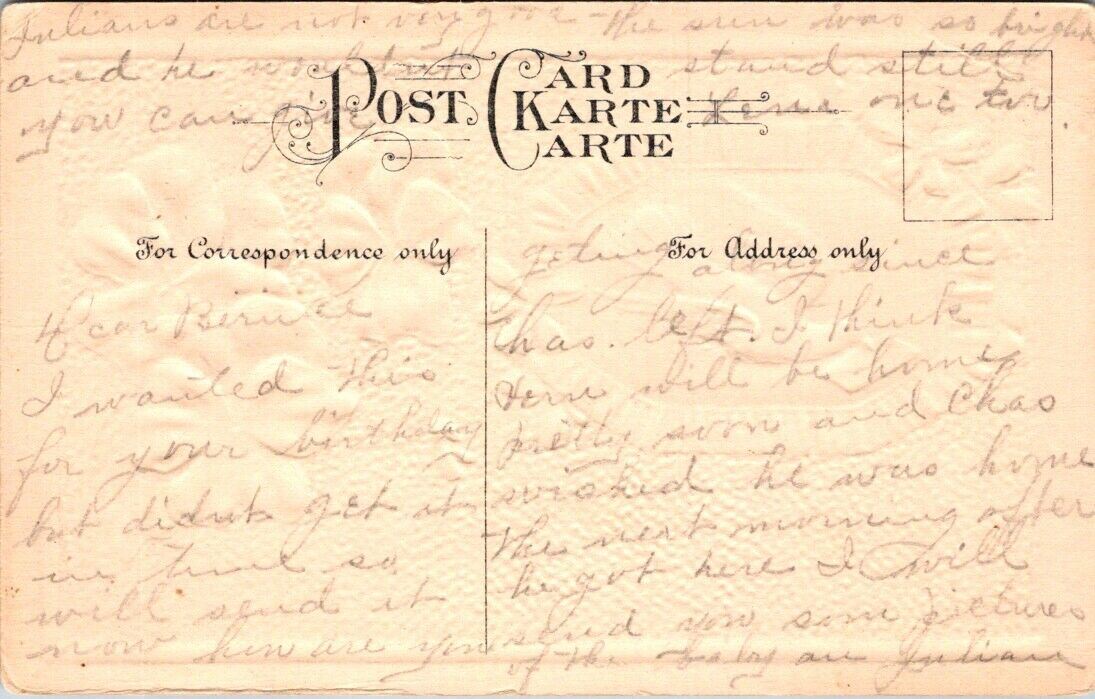 Julians are not very good the sun was so bright
and he wouldnt stand still
you can give Verne one two.
POST CARD
KARTE
CARTE
For Correspondence only
For Address only
Dear Bernice
I wanted this
for your birthday
but didnt get it
in time so
will send it
now how are you
geting along since
Chas. left. I think
Verne will be home
pretty soon and Chas
wished he was home
the next morning after
he got here I will
send you som pictures
of the baby an Julian